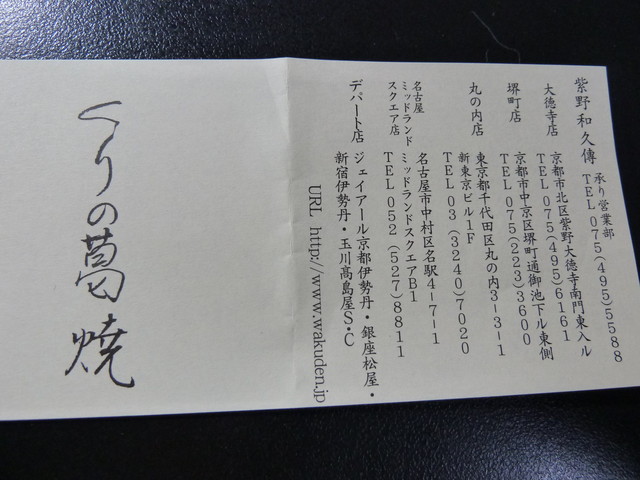 紫野和久傳
承り営業部
TEL 075(495)5588
大徳寺店
京都市北区紫野大徳寺南門東入ル
TEL 075(495)6161
堺町店
京都市中京区堺町通御池下ル東側
TEL 075(223)3600
丸の内店
東京都千代田区丸の内3-3-1
新東京ビル1F
TEL 03(3240)7020
名古屋
ミッドランド
スクエア店
名古屋市中村区名駅4-7-1
ミッドランドスクエアB1
TEL 052(527)8811
デパート店
ジェイアール京都伊勢丹・銀座松屋・
新宿伊勢丹・玉川髙島屋S・C
URL http://www.wakuden.jp
くりの葛焼